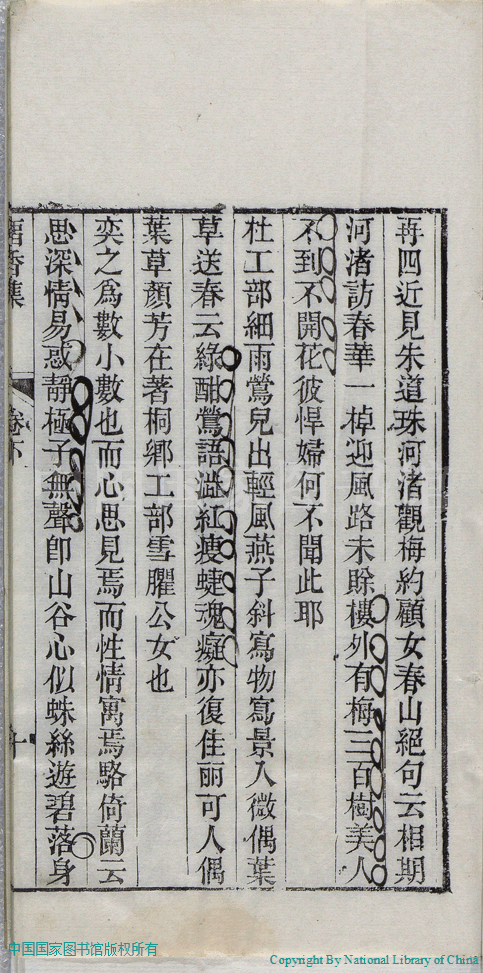 再四近見朱道珠河渚觀梅約顧女春山絕句云相期
河渚訪春華一棹迎風路未賖樓外有梅三百樹美人
不到不開花彼悍婦何不聞此耶
杜工部細雨鶯兒出輕風燕子斜寫物寫景入微偶葉
草送春云綠酣鶯語澁紅瘦蜨魂癡亦復佳丽可人偶
葉草顏芳在著桐鄉工部雪臞公女也
奕之爲數小數也而心思見焉而性情寓焉駱倚蘭云
思深情易惑靜極子無聲卽山谷心似蛛絲遊碧落身
香集
卷下
十
中国国家图书馆版权所有
Copyright By National Library of China